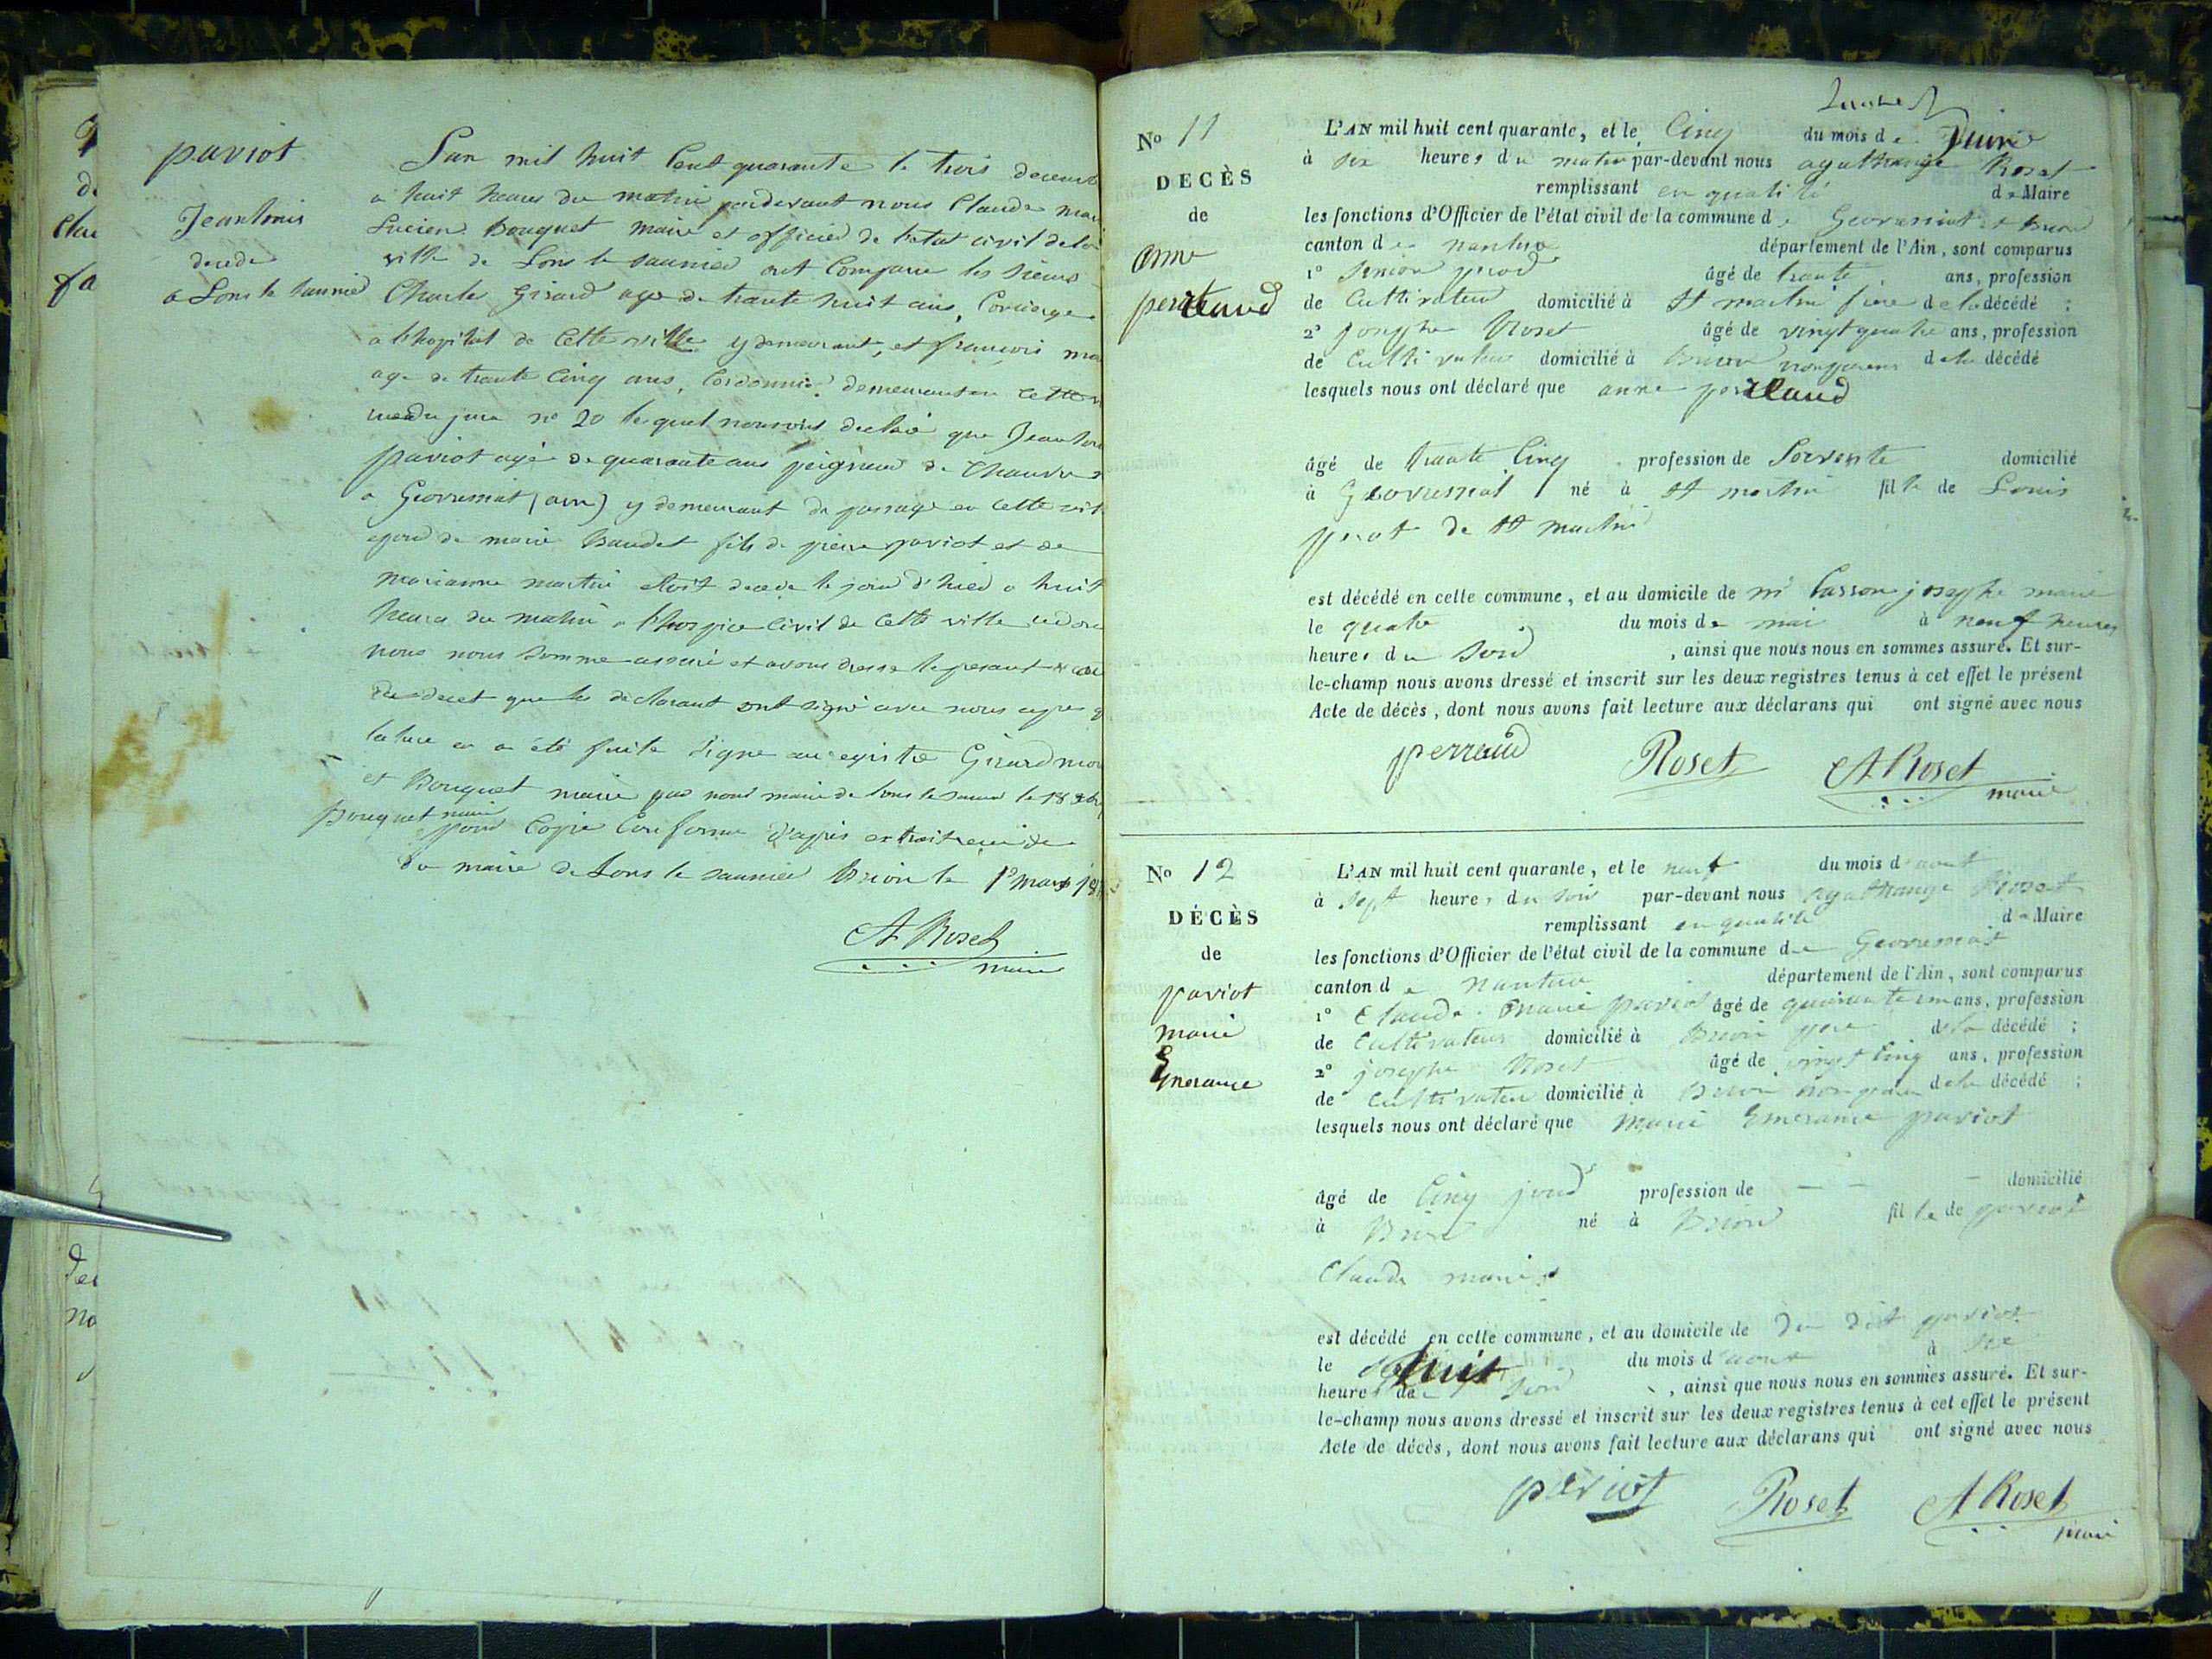 paviot
Jean louis
decedé
a Lons le Saunier
Lan mil huit Cent quarante le trois decemb
a huit heures du matin pardevant nous Claude mar
Lucien Bouquet maire et officier de l'etat civil de la
ville de Lons le saunier ont Comparu les sieurs
Charles Girard age de trante huit ans, Concierge
a lhopital de Cette ville y demeurant, et francois ma
age de trante Cinq ans, Cordonnier demeurant en Cette
rue du jura no 20 lesquel nous ont declaré que Jean loui
paviot agé de quarante ans peigneur de Chanvre
a Geovressiat (ain) y demeurant de passage en Cette vil
epoux de marie Baudet fils de pierre paviot et de
marianne martin etoit decede le jour d'hier a huit
heures du matin a lhospice Civil de Cette ville
nous nous somme assuré et avons dresse le presant
de decet que les declarant ont signé avec nous apres q
lature en a été faite Signe au registre Girard
et Bouquet maire par nous maire de lons le saunier le 18
Bouquet maire
pour Copie Conforme d'apris extrait
du maire de Lons le saunier Brion le 1er mars 18
A Roset
maire
No 11
DECÈS
de
anne
perraud
L'AN mil huit cent quarante, et le Cinq du mois de Juin
à six heures du matin par-devant nous agathange Roset
remplissant en qualité de Maire
les fonctions d'Officier de l'état civil de la commune de Geovressiat et Brion
canton de nantua département de l'Ain, sont comparus
1° Simeon âgé de trante ans, profession
de Cultivateur domicilié à St martin frere de la décédé ;
2° josephe Roset âgé de vingt quatre ans, profession
de Cultivateur domicilié à Brion non parens de la décédé
lesquels nous ont déclaré que anne perraud
âgé de trante Cinq profession de Servente domicilié
à Geovressiat né à St martin fille de Louis
de St martin
est décédé en cette commune, et au domicile de mr josephe marie
le quatre du mois de mai à neuf heures
heures du Soir, ainsi que nous nous en sommes assuré. Et sur-
le-champ nous avons dressé et inscrit sur les deux registres tenus à cet effet le présent
Acte de décès, dont nous avons fait lecture aux déclarans qui ont signé avec nous
perraud Roset A Roset
maire
No 12
DÉCÈS
de
paviot
marie
Emerance
L'AN mil huit cent quarante, et le neuf du mois d'aout
à sept heures du soir par-devant nous agathange Roset
remplissant en qualité de Maire
les fonctions d'Officier de l'état civil de la commune de Geovressiat
canton de nantua département de l'Ain, sont comparus
1° Claude marie paviot âgé de quarante un ans, profession
de Cultivateur domicilié à Brion pere de la décédé ;
2° josephe Roset âgé de vingt Cinq ans, profession
de Cultivateur domicilié à Brion non parens de la décédé ;
lesquels nous ont déclaré que marie Emerance paviot
âgé de Cinq jours profession de — — — domicilié
à Brion né à Brion fille de paviot
Claude marie
est décédé en cette commune, et au domicile de du dit paviot
le huit du mois d'aout à six
heures du Soir, ainsi que nous nous en sommes assuré. Et sur-
le-champ nous avons dressé et inscrit sur les deux registres tenus à cet effet le présent
Acte de décès, dont nous avons fait lecture aux déclarans qui ont signé avec nous
paviot Roset A Roset
maire